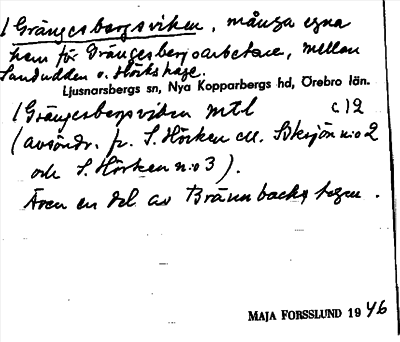 / Grängesbergsviken, många egna
hem för Grängesbergsarbetare, mellan
Sandudden o. Hörks hage.
Ljusnarsbergs sn, Nya Kopparbergs hd, Örebro län.
/ Grängesbergsviken mtl c.12
(avsöndr. fr. S. Hörken ell. Söksjön n:o 2
och S. Hörken n:o 3).
Även en del av Brännbacks
MAJA FORSSLUND 1946